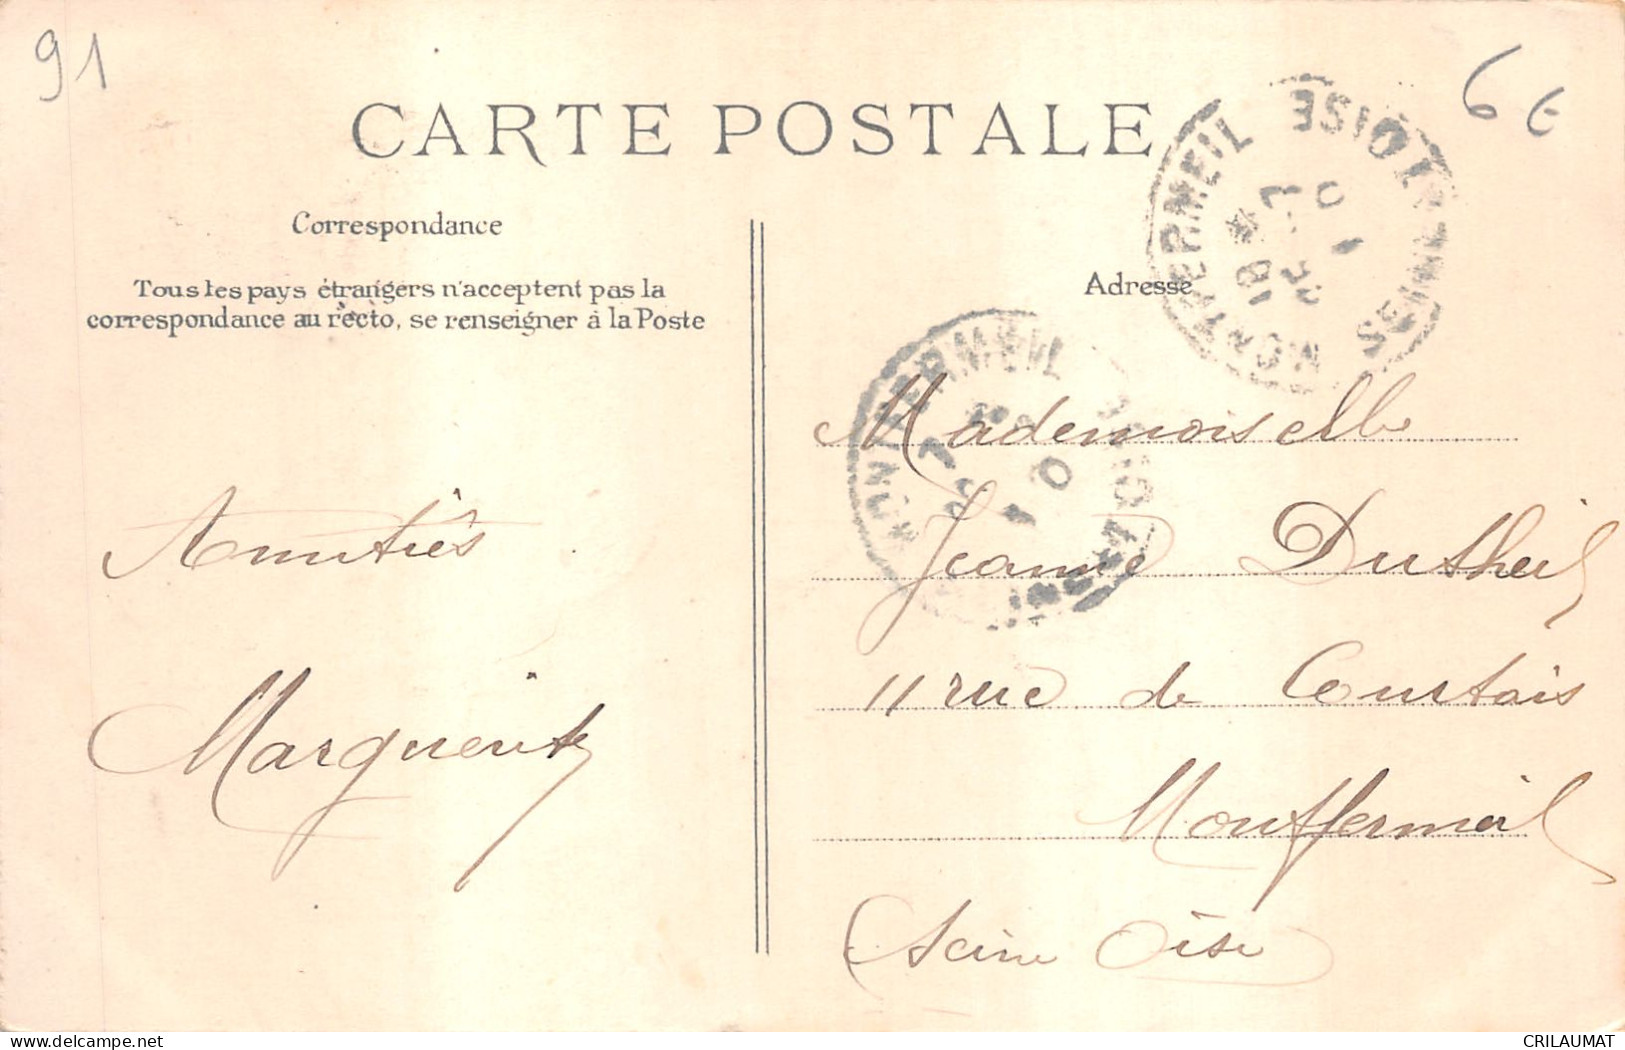 91
6€
CARTE POSTALE
Correspondance
Tous les pays étrangers n'acceptent pas la
correspondance au recto, se renseigner à la Poste
Amitiés
Marguerite
Adresse
MONTFERMEIL SEINE-ET-OISE
18
MONTFERMEIL
Mademoiselle
Jeanne Dutheil
11 rue de Courtais
Montfermeil
Seine Oise
delcampe.net
CRILAUMAT